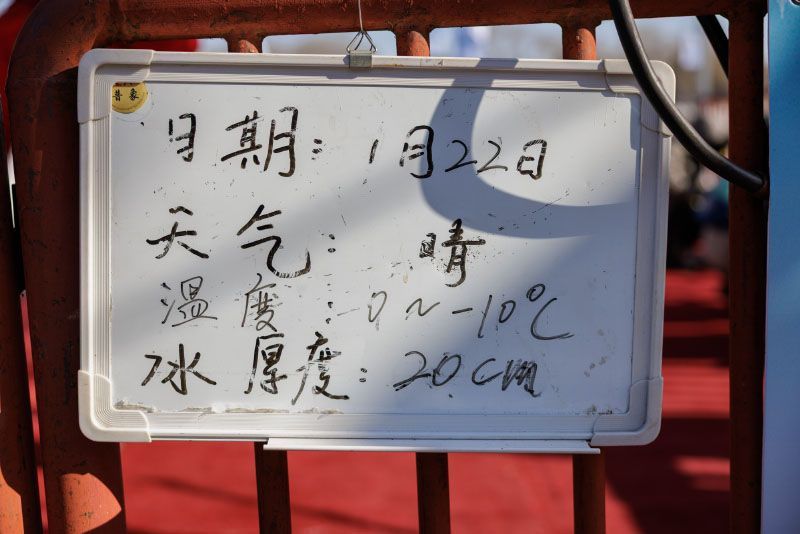 普象
日期：1月22日
天气：晴
温度：-0～-10℃
冰厚度：20cm